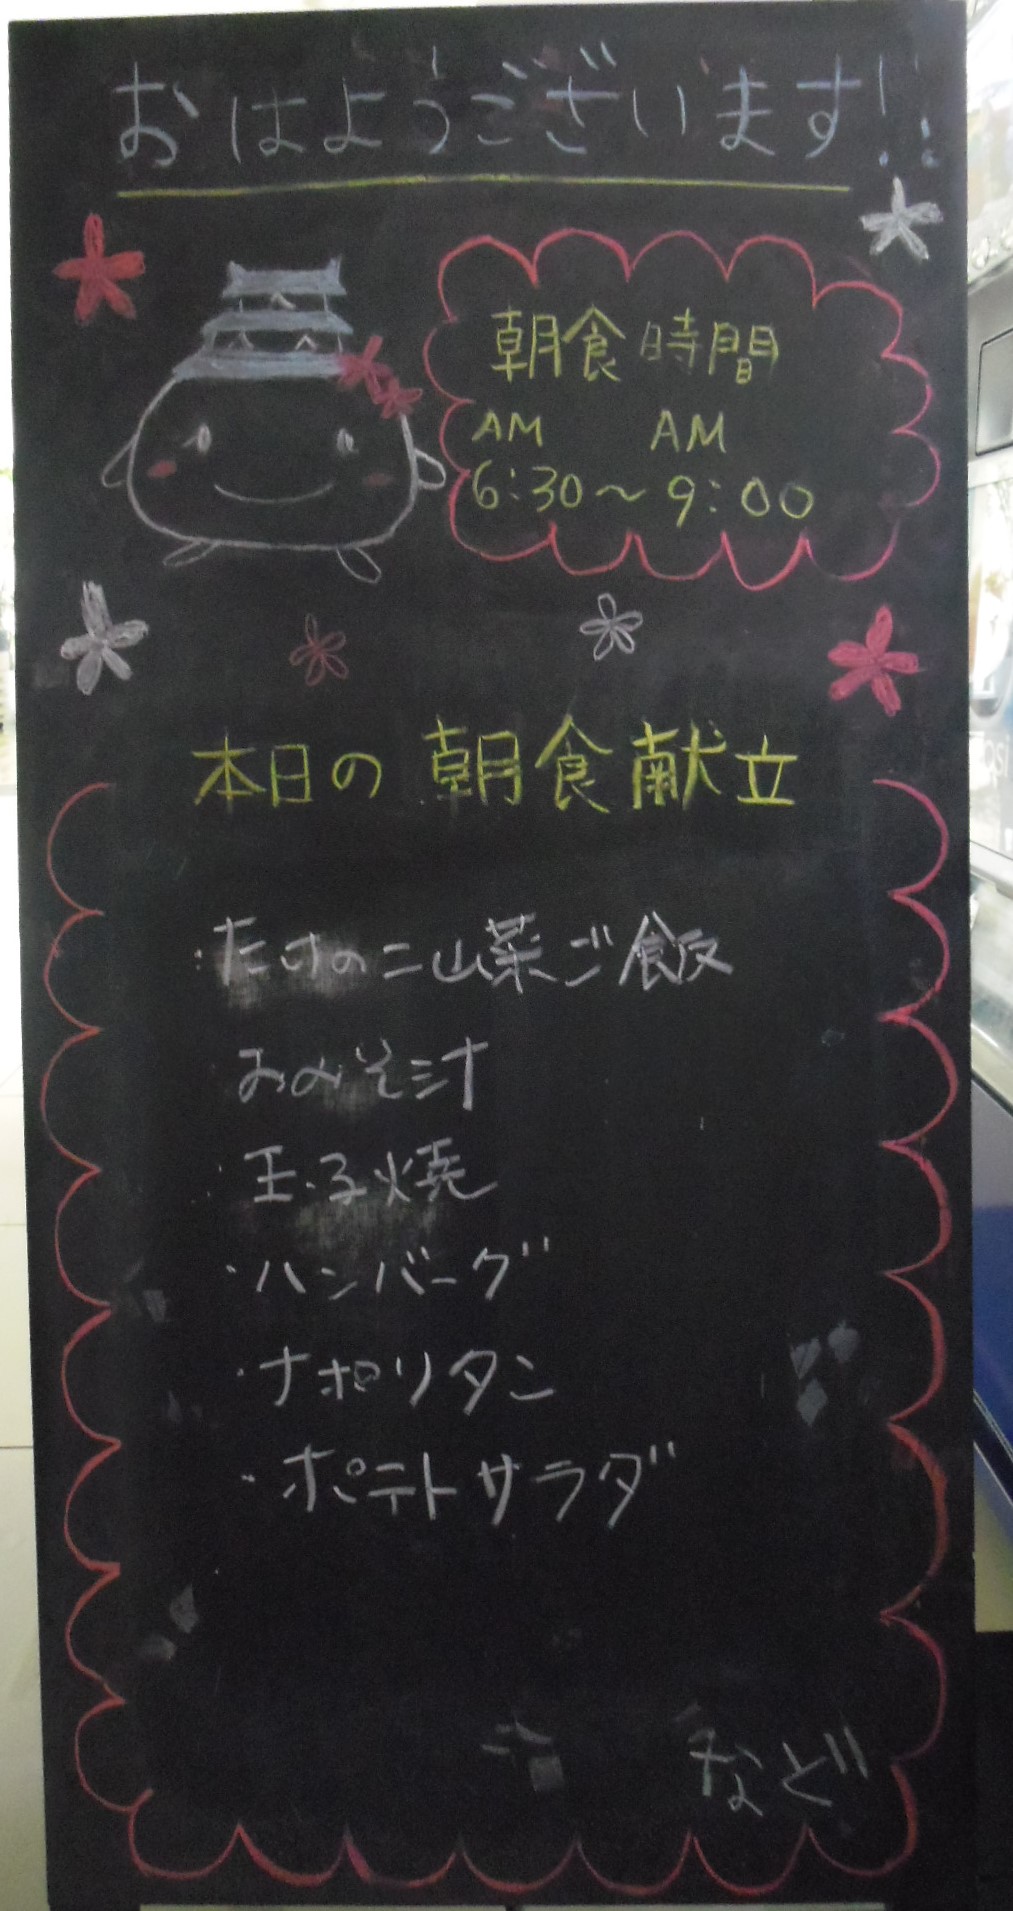 おはようございます!!
朝食時間
AM AM
6:30～9:00
本日の朝食献立
・たけのこ山菜ご飯
おみそ汁
・玉子焼
・ハンバーグ
・ナポリタン
・ポテトサラダ
など